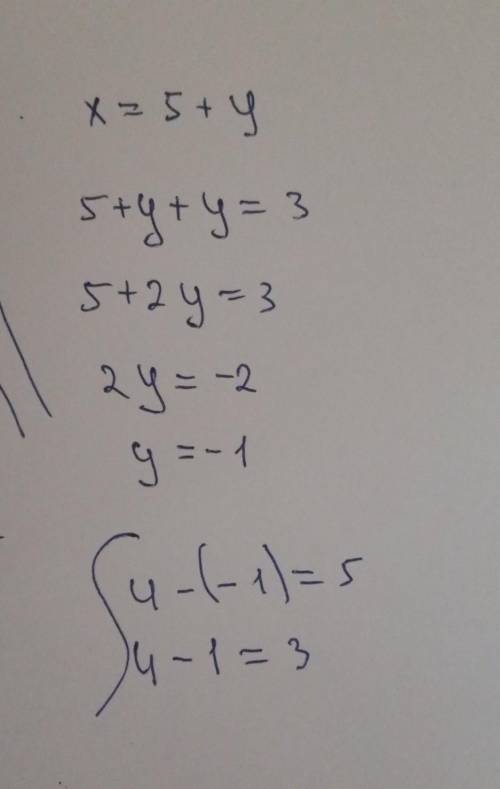 x = 5 + y
5 + y + y = 3
5 + 2y = 3
2y = -2
y = -1
4 - (-1) = 5
4 - 1 = 3